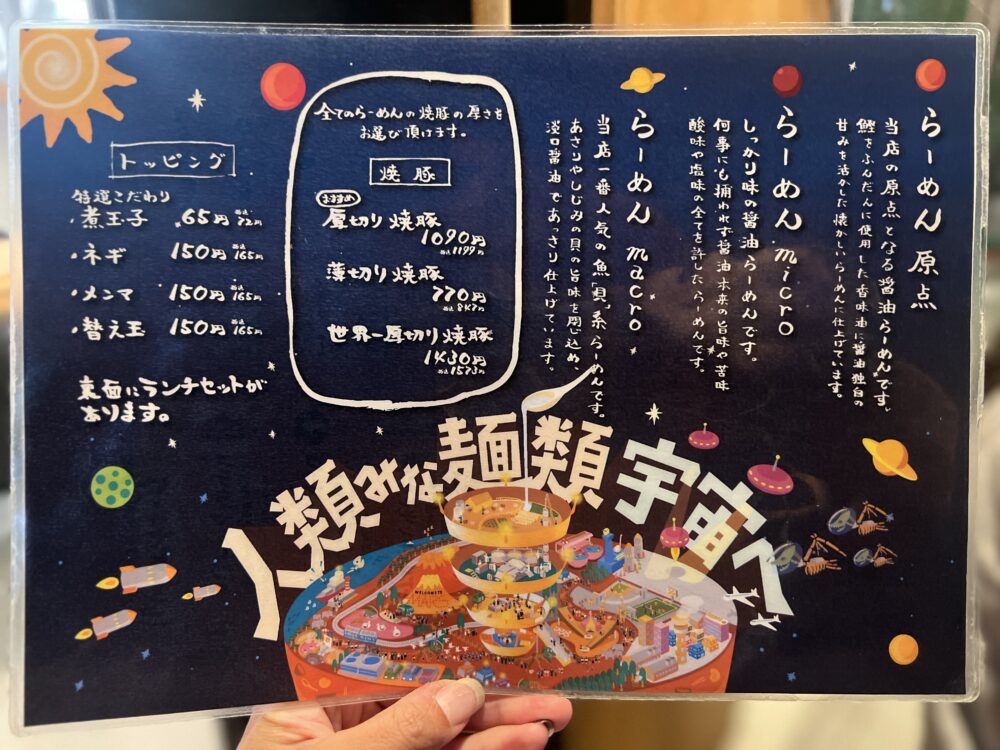 らーめん 原点
当店の原点となる醤油らーめんです。
鰹をふんだんに使用した香味油に醤油独自の
甘みを活かした懐かしいらーめんに仕上げています。
らーめん micro
しっかり味の醤油らーめんです。
何事にも捕われず醤油本来の旨味や苦味
酸味や塩味の全てを許したらーめんです。
らーめん macro
当店一番人気の魚「貝」系らーめんです。
あさりやしじみの貝の旨味を閉じ込め、
淡口醤油であっさり仕上げています。
全てのらーめんの焼豚の厚さを
お選び頂けます。
焼豚
おすすめ
厚切り焼豚
1090円
税込1199円
薄切り焼豚
770円
税込847円
世界一厚切り焼豚
1430円
税込1573円
トッピング
特選こだわり
・煮玉子 65円 税込72円
・ネギ 150円 税込165円
・メンマ 150円 税込165円
・替え玉 150円 税込165円
裏面にランチセットが
あります。
人類みな麺類宇宙へ